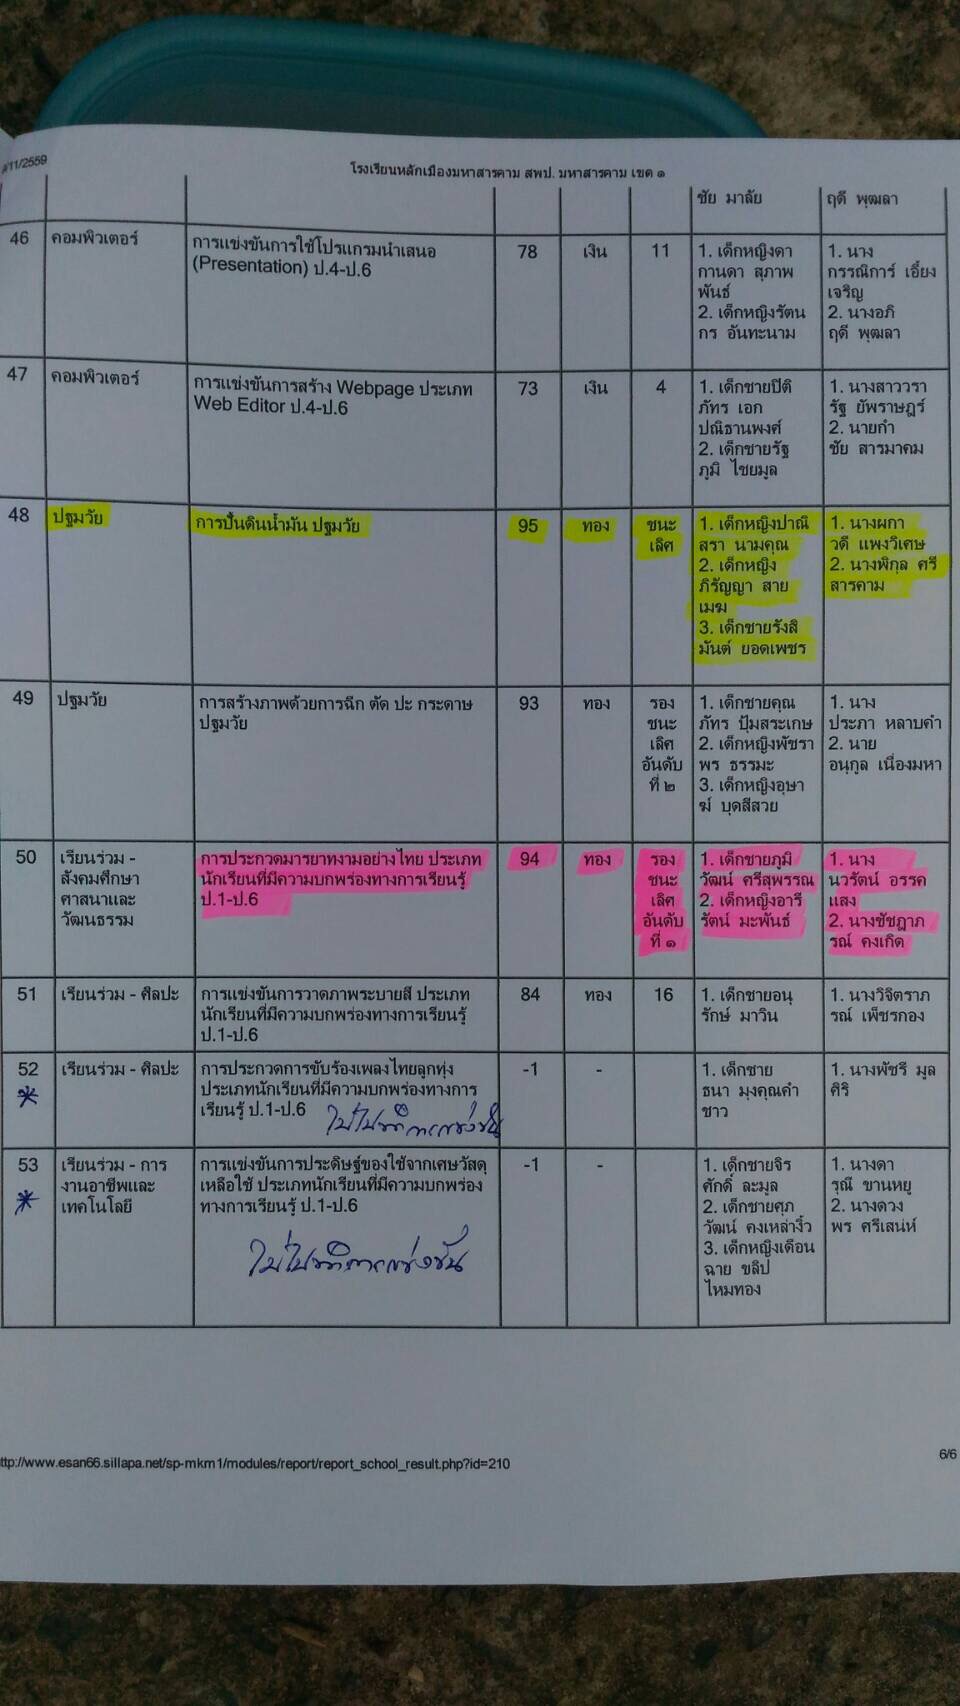 /11/2559
โรงเรียนหลักเมืองมหาสารคาม สพป. มหาสารคาม เขต ๑
ชัย มาลัย
ฤดี พุฒลา
46
คอมพิวเตอร์
การแข่งขันการใช้โปรแกรมนำเสนอ
(Presentation) ป.4-ป.6
78
เงิน
11
1. เด็กหญิงดา
กานดา สุภาพ
พันธ์
2. เด็กหญิงรัตน
กร อันทะนาม
1. นาง
กรรณิการ์ เอี้ยง
เจริญ
2. นางอภิ
ฤดี พุฒลา
47
คอมพิวเตอร์
การแข่งขันการสร้าง Webpage ประเภท
Web Editor ป.4-ป.6
73
เงิน
4
1. เด็กชายปิติ
ภัทร เอก
ปณิธานพงศ์
2. เด็กชายรัฐ
ภูมิ ไชยมูล
1. นางสาววรา
รัฐ ยัพราษฎร์
2. นายกำ
ชัย สารมาคม
48
ปฐมวัย
การปั้นดินน้ำมัน ปฐมวัย
95
ทอง
ชนะ
เลิศ
1. เด็กหญิงปาณิ
สรา นามคุณ
2. เด็กหญิง
ภิรัญญา สาย
เมฆ
3. เด็กชายรังสิ
มันต์ ยอดเพชร
1. นางผกา
วดี แพงวิเศษ
2. นางพิกุล ศรี
สารคาม
49
ปฐมวัย
การสร้างภาพด้วยการฉีก ตัด ปะ กระดาษ
ปฐมวัย
93
ทอง
รอง
ชนะ
เลิศ
อันดับ
ที่ ๒
1. เด็กชายคุณ
ภัทร ปุ้มสระเกษ
2. เด็กหญิงพัชรา
พร ธรรมะ
3. เด็กหญิงอุษา
ฆ์ บุดสีสวย
1. นาง
ประภา หลาบคำ
2. นาย
อนุกูล เนื่องมหา
50
เรียนร่วม -
สังคมศึกษา
ศาสนาและ
วัฒนธรรม
การประกวดมารยาทงามอย่างไทย ประเภท
นักเรียนที่มีความบกพร่องทางการเรียนรู้
ป.1-ป.6
94
ทอง
รอง
ชนะ
เลิศ
อันดับ
ที่ ๑
1. เด็กชายภูมิ
วัฒน์ ศรีสุพรรณ
2. เด็กหญิงอารี
รัตน์ มะพันธ์
1. นาง
นวรัตน์ อรรค
แสง
2. นางชัชฎาภ
รณ์ คงเกิด
51
เรียนร่วม - ศิลปะ
การแข่งขันการวาดภาพระบายสี ประเภท
นักเรียนที่มีความบกพร่องทางการเรียนรู้
ป.1-ป.6
84
ทอง
16
1. เด็กชายอนุ
รักษ์ มาวิน
1. นางวิจิตราภ
รณ์ เพ็ชรกอง
52
เรียนร่วม - ศิลปะ
การประกวดการขับร้องเพลงไทยลูกทุ่ง
ประเภทนักเรียนที่มีความบกพร่องทางการ
เรียนรู้ ป.1-ป.6
ไม่ไปทำการแข่งขัน
-1
-
1. เด็กชาย
ธนา มุงคุณคำ
ชาว
1. นางพัชรี มูล
ศิริ
53
เรียนร่วม - การ
งานอาชีพและ
เทคโนโลยี
การแข่งขันการประดิษฐ์ของใช้จากเศษวัสดุ
เหลือใช้ ประเภทนักเรียนที่มีความบกพร่อง
ทางการเรียนรู้ ป.1-ป.6
ไม่ไปทำการแข่งขัน
-1
-
1. เด็กชายจิร
ศักดิ์ ละมูล
2. เด็กชายศุภ
วัฒน์ คงเหล่างิ้ว
3. เด็กหญิงเดือน
ฉาย ขลิป
ไหมทอง
1. นางดา
รุณี ขานหยู
2. นางดวง
พร ศรีเสน่ห์
ttp://www.esan66.sillapa.net/sp-mkm1/modules/report/report_school_result.php?id=210
6/6